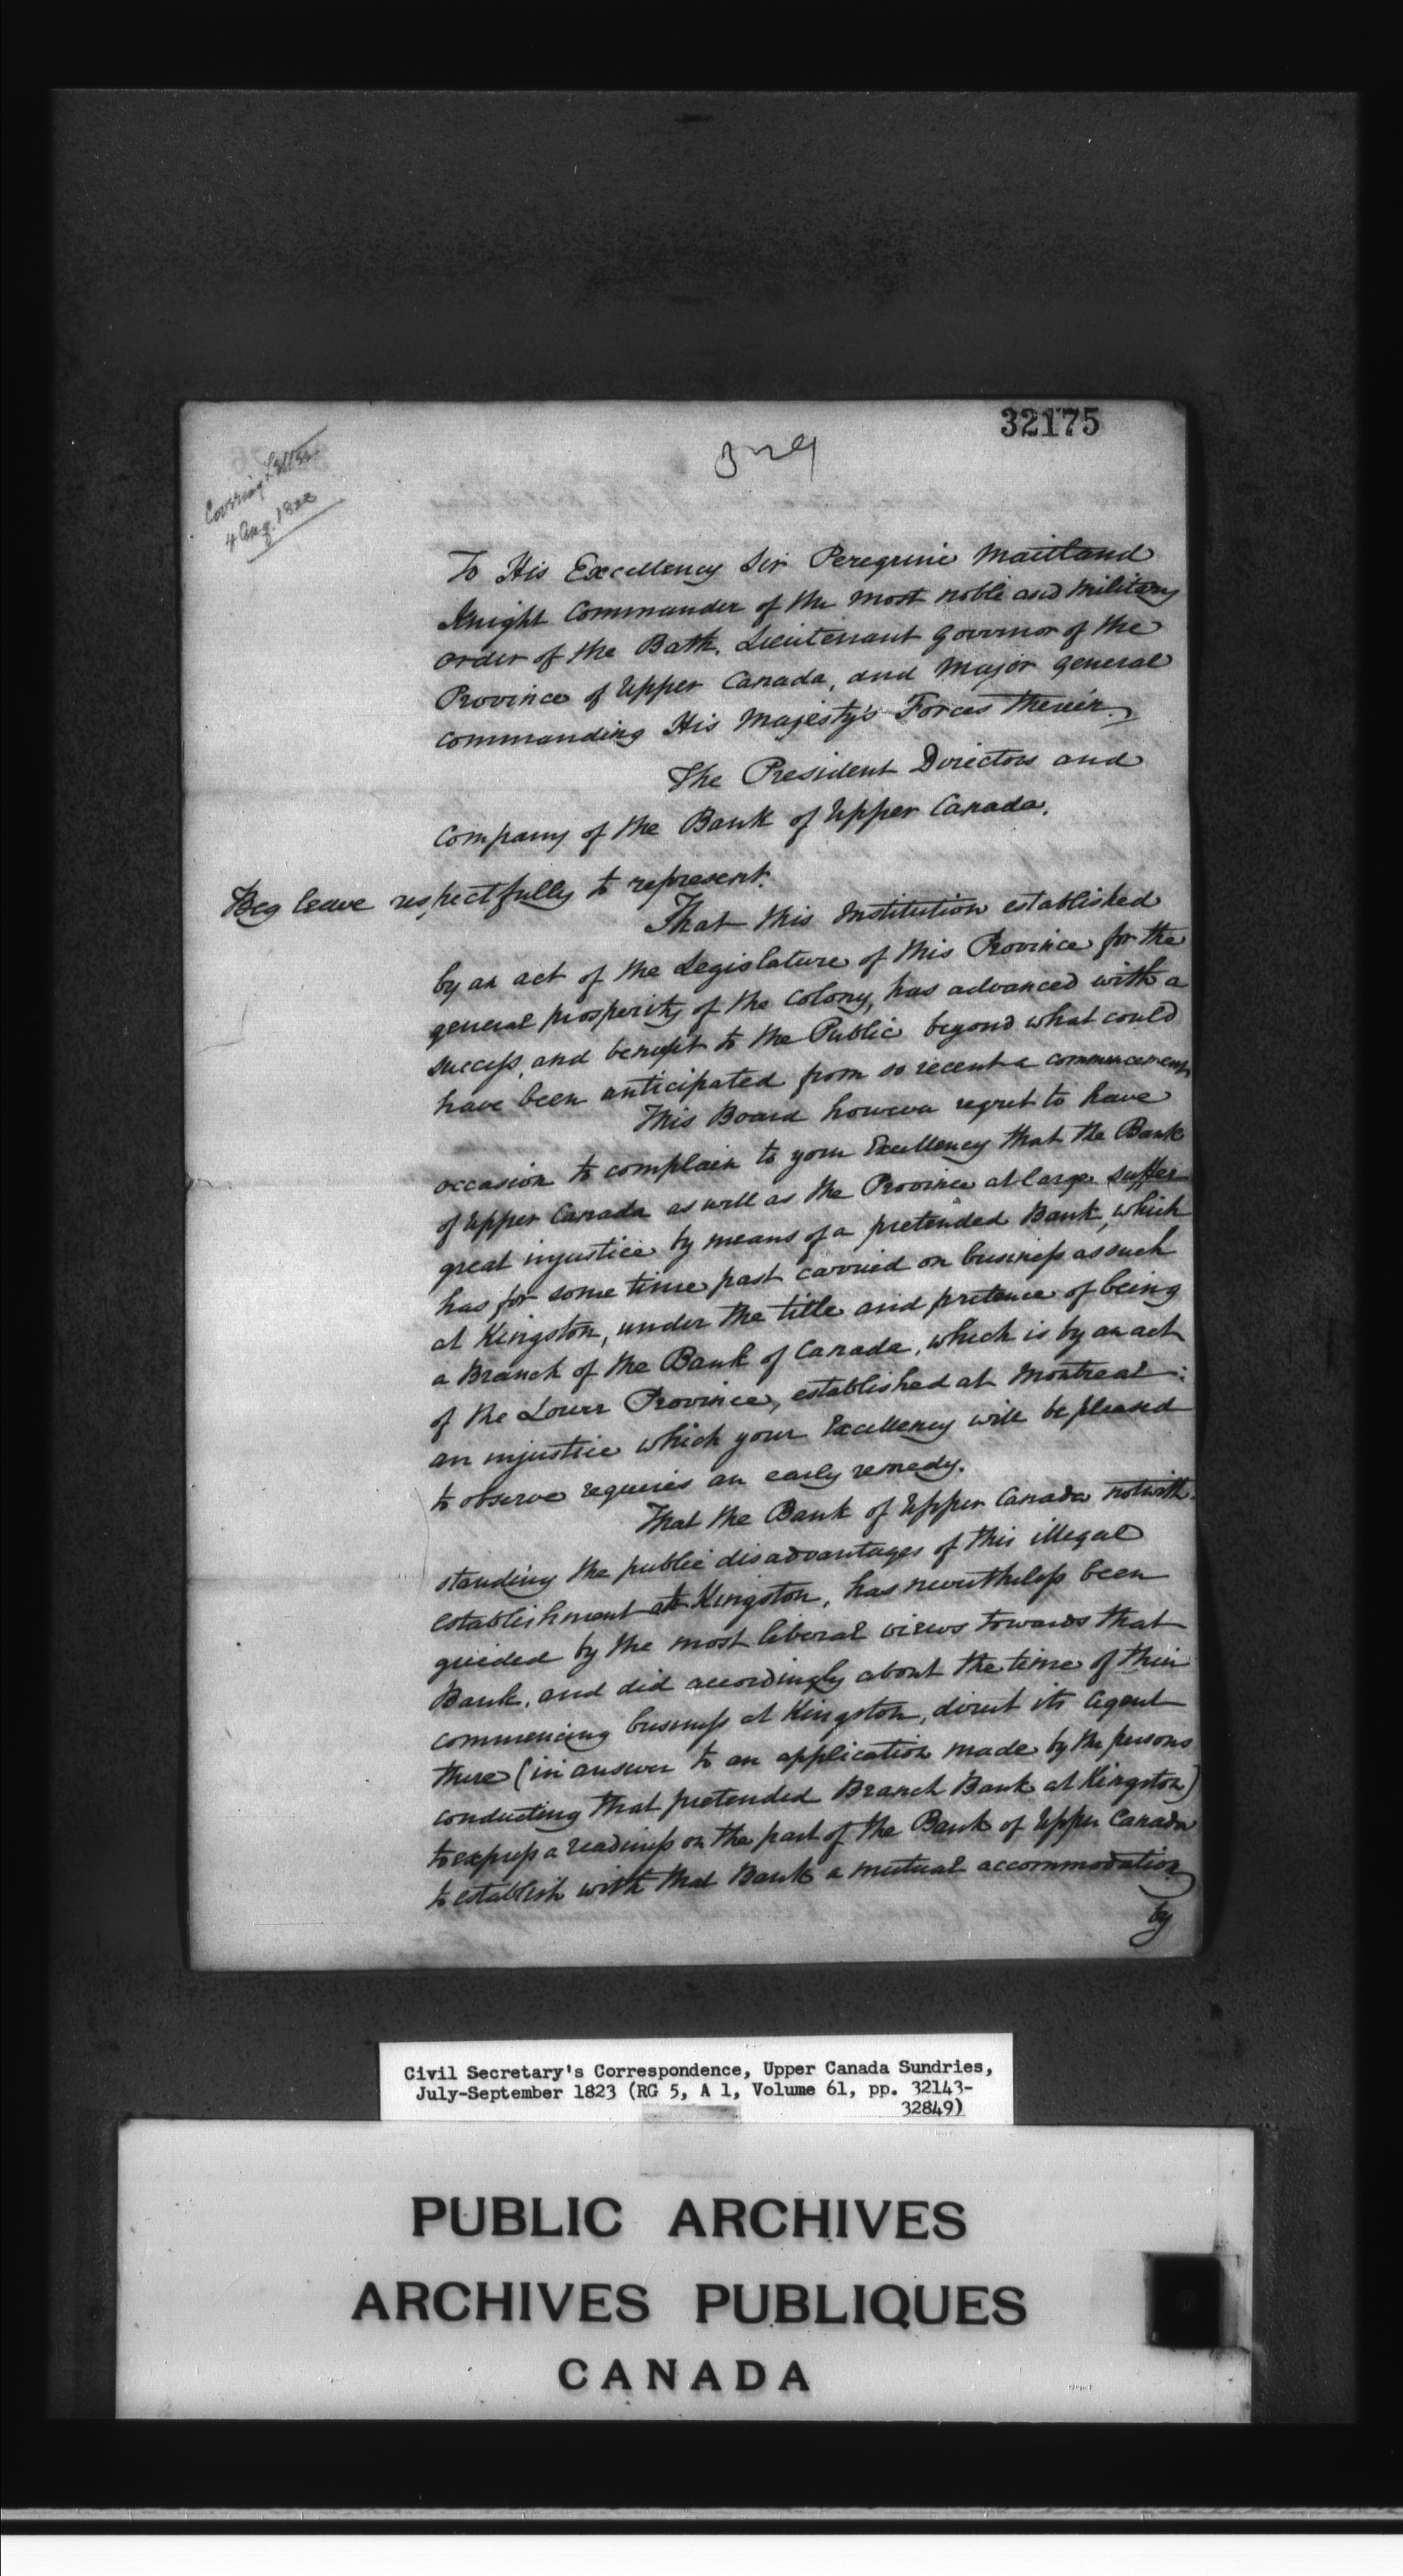 32175
Covering Letter
4 Aug. 1823
To His Excellency Sir Peregrine Maitland
Knight Commander of the most noble and military
order of the Bath, Lieutenant Governor of the
Province of Upper Canada, and Major General
commanding His Majesty's Forces therein.
The President Directors and
Company of the Bank of Upper Canada.
Beg leave respectfully to represent.
That this Institution established
by an act of the Legislature of this Province for the
general prosperity of the Colony, has advanced with a
success, and benefit to the Public beyond what could
have been anticipated from so recent a commencement
This Board however regret to have
occasion to complain to your Excellency that the Bank
of Upper Canada as well as the Province at large suffer
great injustice by means of a pretended Bank, which
has for some time past carried on business as such
at Kingston, under the title and pretence of being
a Branch of the Bank of Canada, which is by an act
of the Lower Province, established at Montreal:
an injustice which your Excellency will be pleased
to observe requires an early remedy.
That the Bank of Upper Canada notwith-
standing the public disadvantages of this illegal
establishment at Kingston, has nevertheless been
guided by the most liberal views towards that
Bank, and did accordingly about the time of their
commencing business at Kingston, direct its Agent
there (in answer to an application made by the persons
conducting that pretended Branch Bank at Kingston)
to express a readiness on the part of the Bank of Upper Canada
to establish with that Bank a mutual accommodation
by
Civil Secretary's Correspondence, Upper Canada Sundries,
July-September 1823 (RG 5, A 1, Volume 61, pp. 32143-
32849)
PUBLIC ARCHIVES
ARCHIVES PUBLIQUES
CANADA